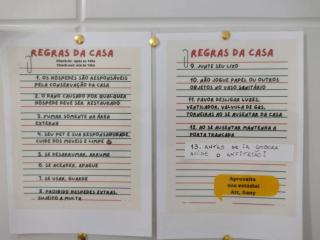 REGRAS DA CASA
1. OS HÓSPEDES SÃO RESPONSÁVEIS
PELA CONSERVAÇÃO DA CASA
2. O DANO CAUSADO POR QUALQUER
HÓSPEDE DEVE SER RESTAURADO
3. FUMAR SOMENTE NA ÁREA
EXTERNA
4. SEU PET É SUA RESPONSABILIDADE,
CUIDE DOS MÓVEIS E LIMPE
5. SE DESARRUMAR, ARRUME
6. SE ACENDER, APAGUE
7. SE USAR, GUARDE
8. PROIBIDO HÓSPEDES EXTRAS,
SUJEITO A MULTA
REGRAS DA CASA
9. JUNTE SEU LIXO
10. NÃO JOGUE PAPEL OU OUTROS
OBJETOS NO VASO SANITÁRIO
11. FAVOR DESLIGAR LUZES,
VENTILADOR, VÁLVULA DE GÁS,
TORNEIRAS AO SE AUSENTAR DA CASA
12. AO SE AUSENTAR MANTENHA A
PORTA TRANCADA
13. ANTES DE IR EMBORA
AVISE O ANFITRIÃO
Aproveite
sua estadia!
Att, Dany